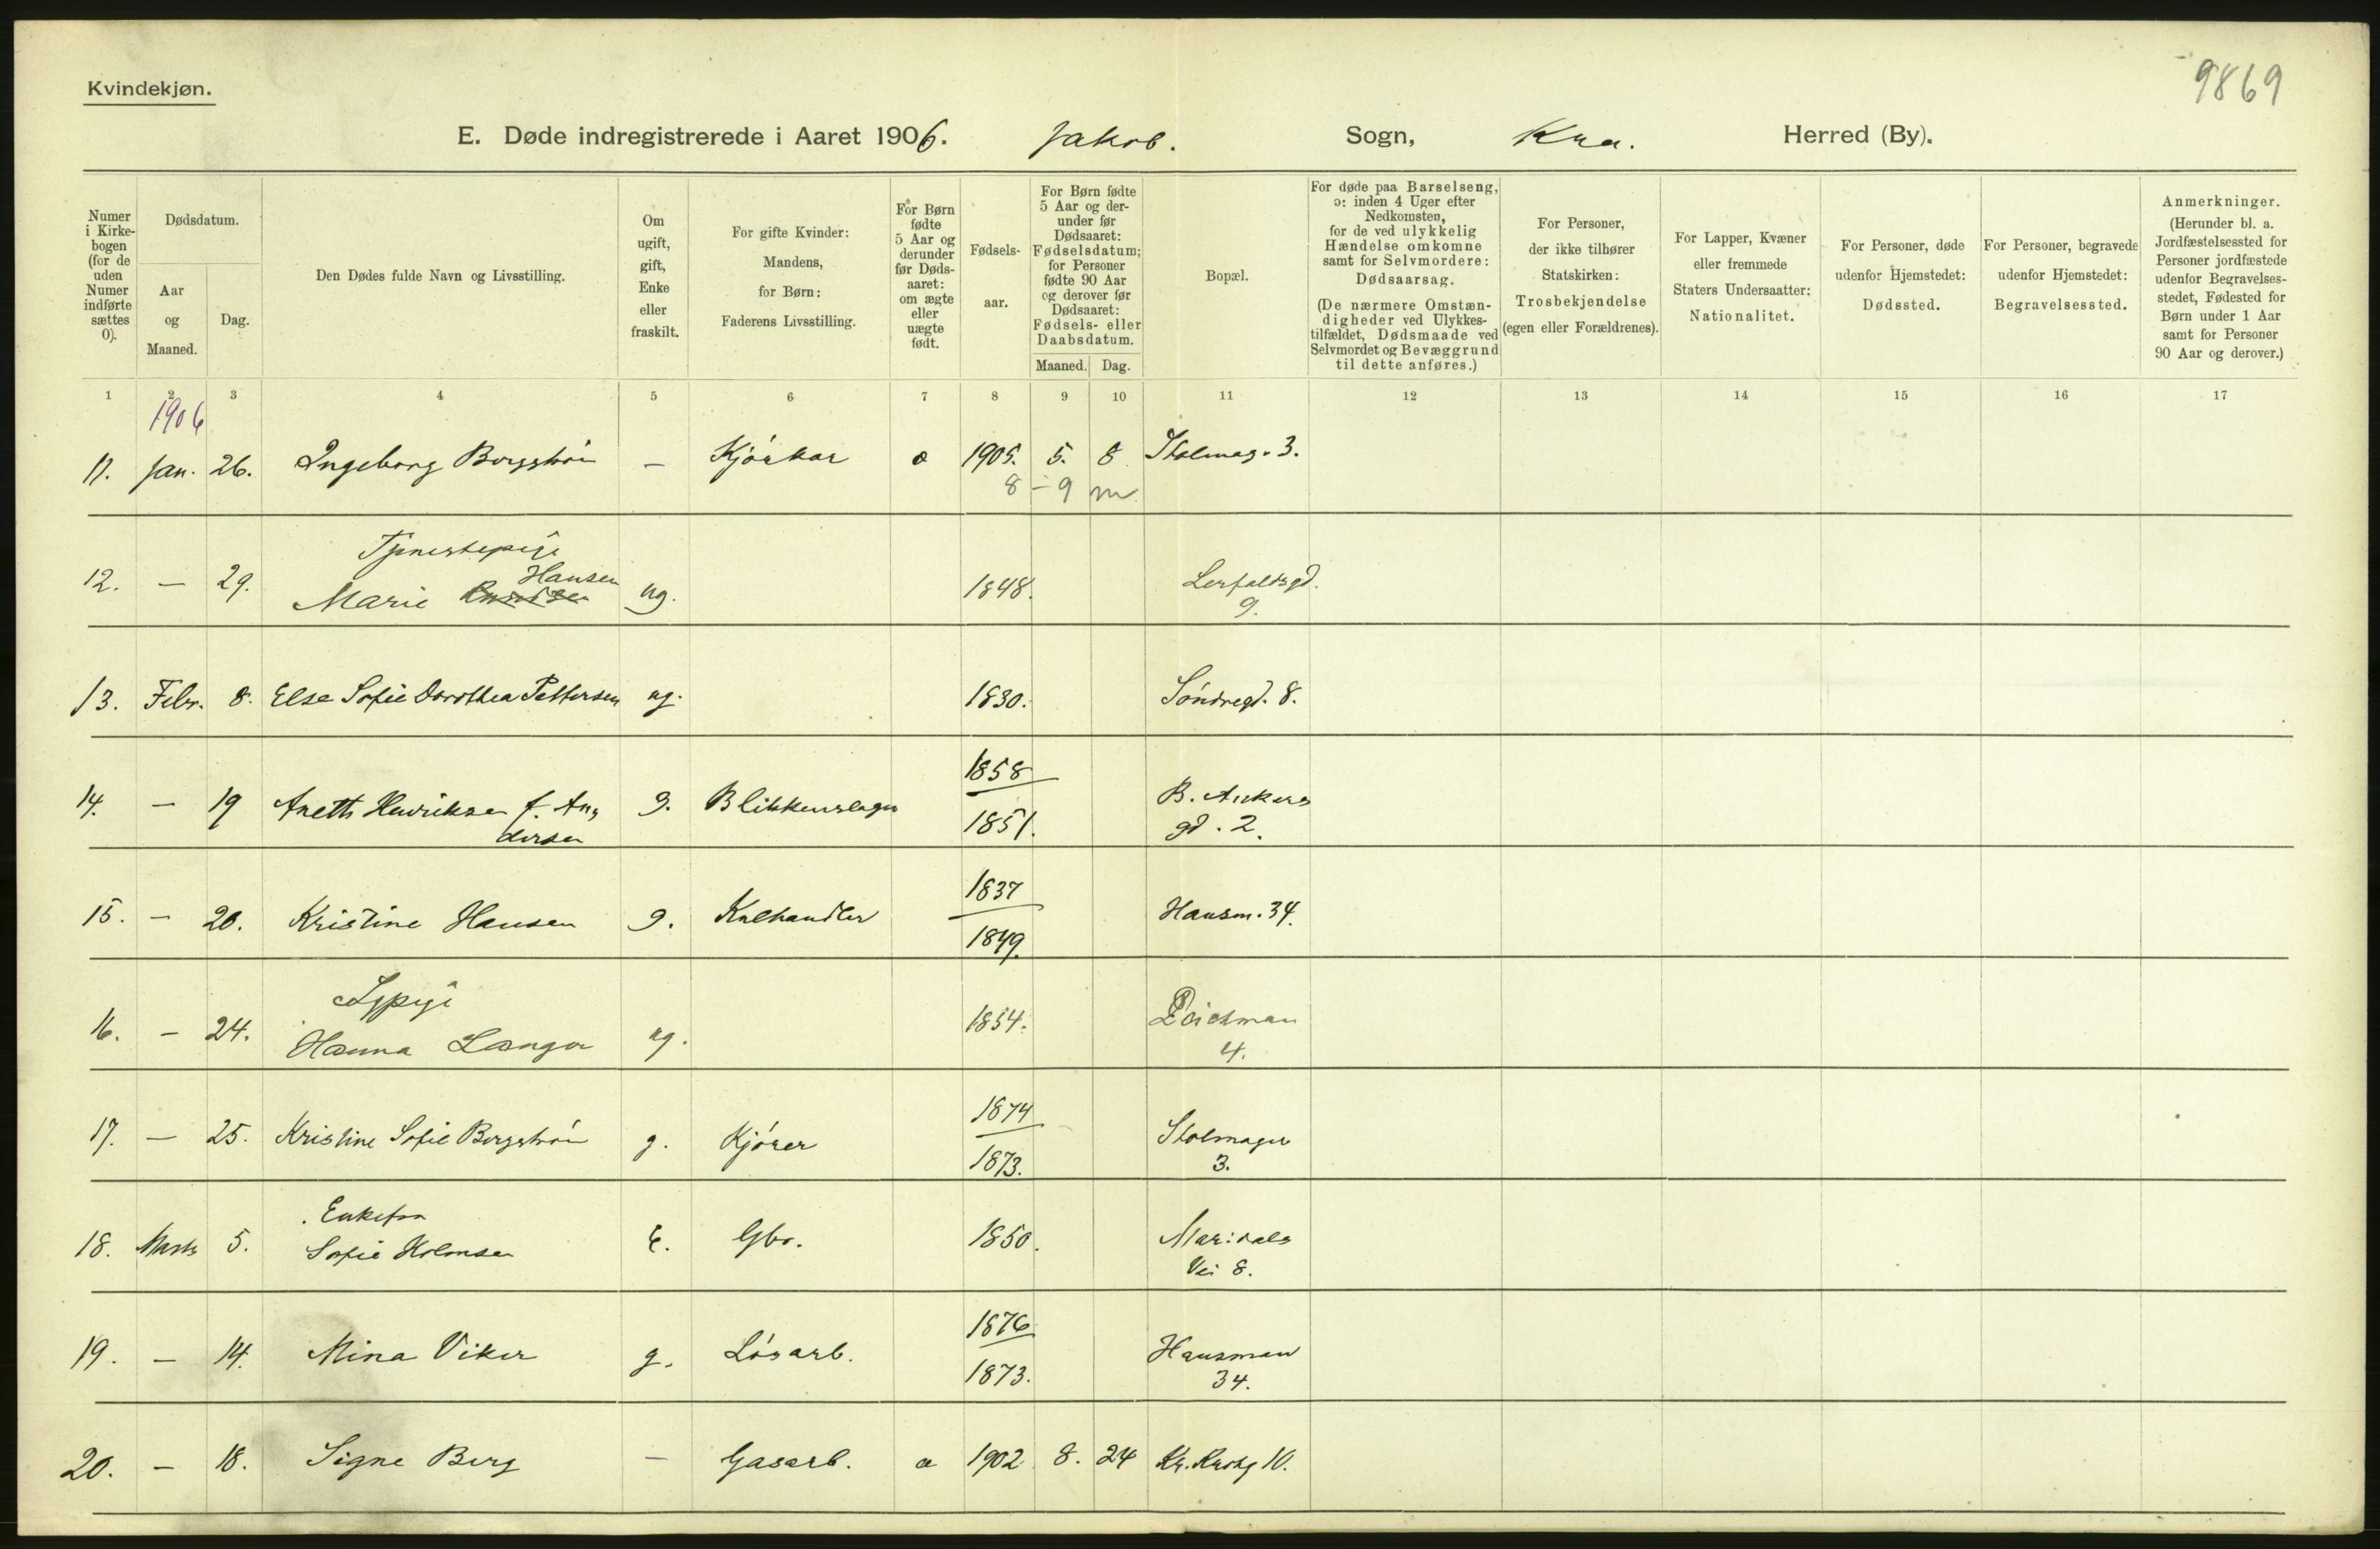 9869
Kvindekjøn.
E. Døde indregistrerede i Aaret 1906. Jakob. Sogn, Kra. Herred (By).
Numer i Kirkebogen (for de uden Numer indførte sættes 0).
Dødsdatum.
Aar og Maaned.
Dag.
Den Dødes fulde Navn og Livsstilling.
Om ugift, gift, Enke eller fraskilt.
For gifte Kvinder: Mandens, for Børn: Faderens Livsstilling.
For Børn fødte 5 Aar og derunder før Dødsaaret: om ægte eller uægte født.
Fødselsaar.
For Børn fødte 5 Aar og derunder før Dødsaaret: Fødselsdatum; for Personer fødte 90 Aar og derover før Dødsaaret: Fødsels- eller Daabsdatum.
Maaned. Dag.
Bopæl.
For døde paa Barselseng, ɔ: inden 4 Uger efter Nedkomsten, for de ved ulykkelig Hændelse omkomne samt for Selvmordere: Dødsaarsag.
(De nærmere Omstændigheder ved Ulykkestilfældet, Dødsmaade ved Selvmordet og Bevæggrund til dette anføres.)
For Personer, der ikke tilhører Statskirken: Trosbekjendelse (egen eller Forældrenes).
For Lapper, Kvæner eller fremmede Staters Undersaatter: Nationalitet.
For Personer, døde udenfor Hjemstedet: Dødssted.
For Personer, begravede udenfor Hjemstedet: Begravelsessted.
Anmerkninger.
(Herunder bl. a. Jordfæstelsessted for Personer jordfæstede udenfor Begravelsesstedet, Fødested for Børn under 1 Aar samt for Personer 90 Aar og derover.)
1 2 3 4 5 6 7 8 9 10 11 12 13 14 15 16 17
1906
11. Jan. 26. Ingeborg Bergström — 1905. 5. 8 Stolmag. 3.
8 - 9 m
Tjenestepige
Hansen
12. — 29. Marie ug. 1848. Lerfaldsgd.
9.
13. Febr. 8. Else Sofie Dorothea Pettersen ug. 1830. Söndregd. 8.
1858
14. — 19 Aneth Henriksen f. An, g. Blikkenslager B. Ankers
dersen 1851. gd. 2.
1837
15. — 20. Kristine Hansen g. Kulhandler Hausm. 34.
1849.
Sypige
16. — 24. Hanna Langer ug. 1854. Deichman
4.
1874
17. — 25. Kristine Sofie Bergström g. Kjörer Stolmager
1873. 3.
Enkefru
18. Marts 5. Sofie Holmsen E. Gbr. 1850. Maridals
Vei 8.
1876
19. — 14. Mina Viker g. Lösarb. Hausman
1873. 34.
20. — 18. Signe Berg — Gasarb. a 1902 8. 24 Kr. Krohg 10.